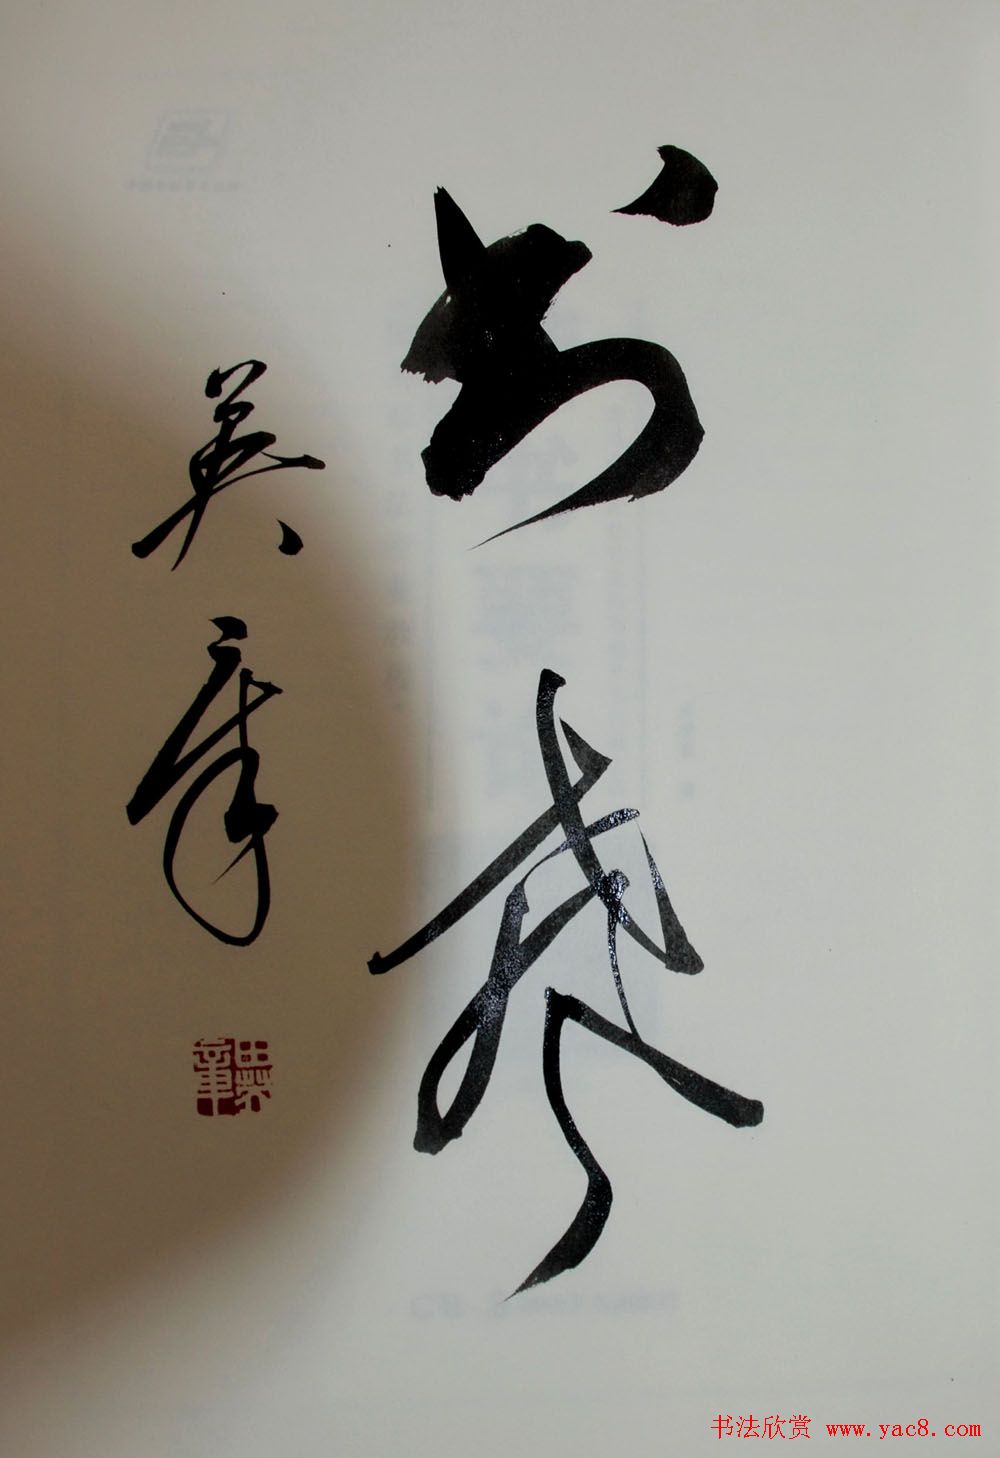 书
英章
田英章
书法欣赏 www.yac8.com